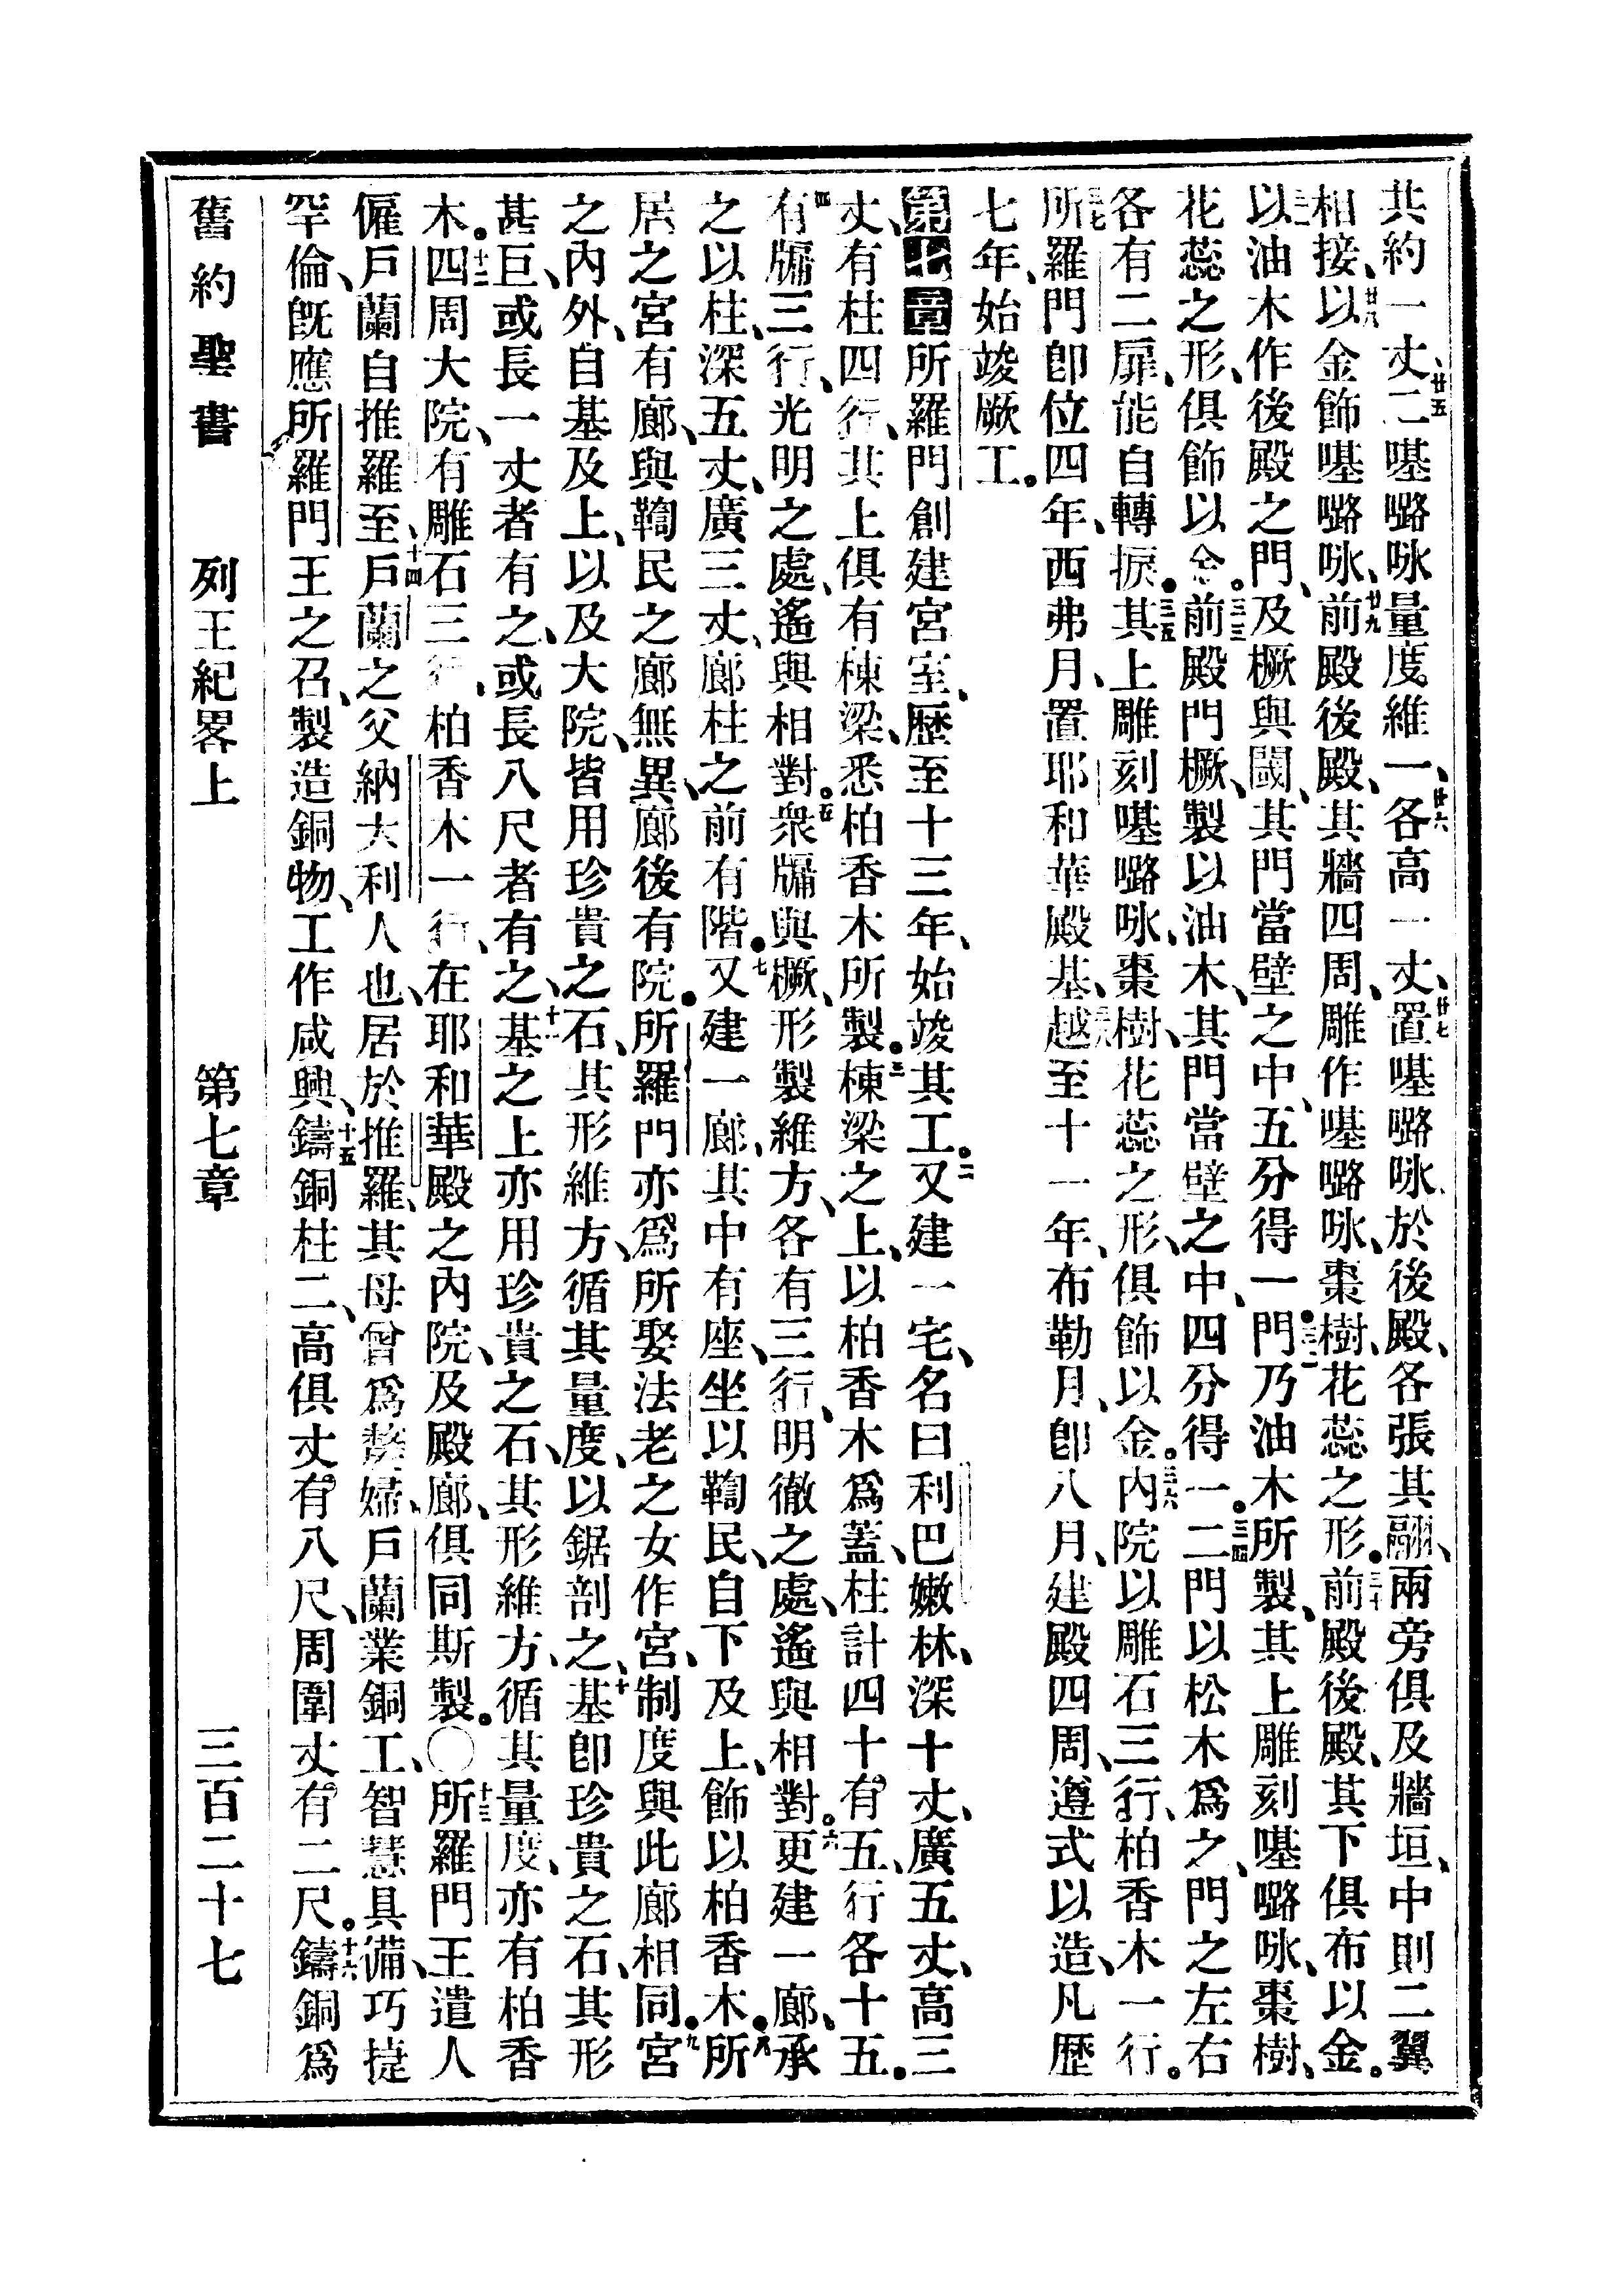 共約一丈、廿五二㗭嚕㕲量度維一、廿六各高一丈、廿七置㗭嚕㕲於後殿、各張其翮、兩旁俱及牆垣、中則二翼
相接、廿八以金飾㗭嚕㕲、廿九前殿後殿、其牆四周、雕作㗭嚕㕲、棗樹、花蕊之形。三十前殿後殿、其下俱布以金。
三一以油木作後殿之門、及橛與閾、其門當壁之中、五分得一、三二門乃油木所製、其上雕刻㗭嚕㕲、棗樹、
花蕊之形、俱飾以金。三三前殿門橛、製以油木、其門當壁之中、四分得一。三四二門以松木爲之、門之左右
各有二扉、能自轉捩。三五其上雕刻㗭嚕㕲、棗樹、花蕊之形、俱飾以金。三六內院以雕石三行、柏香木一行。
三七所羅門卽位四年、西弗月、置耶和華殿基、三八越至十一年、布勒月、卽八月、建殿四周、遵式以造、凡歷
七年、始竣厥工。
第七章所羅門創建宮室、歷至十三年、始竣其工。二又建一宅、名曰利巴嫩林、深十丈、廣五丈、高三
丈、有柱四行、其上俱有棟梁、悉柏香木所製。三棟梁之上、以柏香木爲蓋、柱計四十有五、行各十五。
四有牖三行、光明之處、遙與相對。五衆牖與橛、形製維方、各有三行、明徹之處、遙與相對。六更建一廊、承
之以柱、深五丈、廣三丈、廊柱之前有階。七又建一廊、其中有座、坐以鞫民、自下及上、飾以柏香木。八所
居之宮有廊、與鞫民之廊無異、廊後有院。所羅門亦爲所娶法老之女作宮、制度與此廊相同。九宮
之內外、自基及上、以及大院、皆用珍貴之石、其形維方、循其量度、以鋸剖之、十基卽珍貴之石、其形
甚巨、或長一丈者有之、或長八尺者有之、十一基之上亦用珍貴之石、其形維方、循其量度、亦有柏香
木。十二四周大院、有雕石三行、柏香木一行、在耶和華殿之內院、及殿廊、俱同斯製。〇十三所羅門王遣人
僱戶蘭自推羅至、十四戶蘭之父納大利人也、居於推羅、其母曾爲嫠婦、戶蘭業銅工、智慧具備、巧捷
罕倫、旣應所羅門王之召、製造銅物、工作咸興、十五鑄銅柱二、高俱丈有八尺、周圍丈有二尺。十六鑄銅爲
舊約聖書　列王紀畧上　第七章　三百二十七